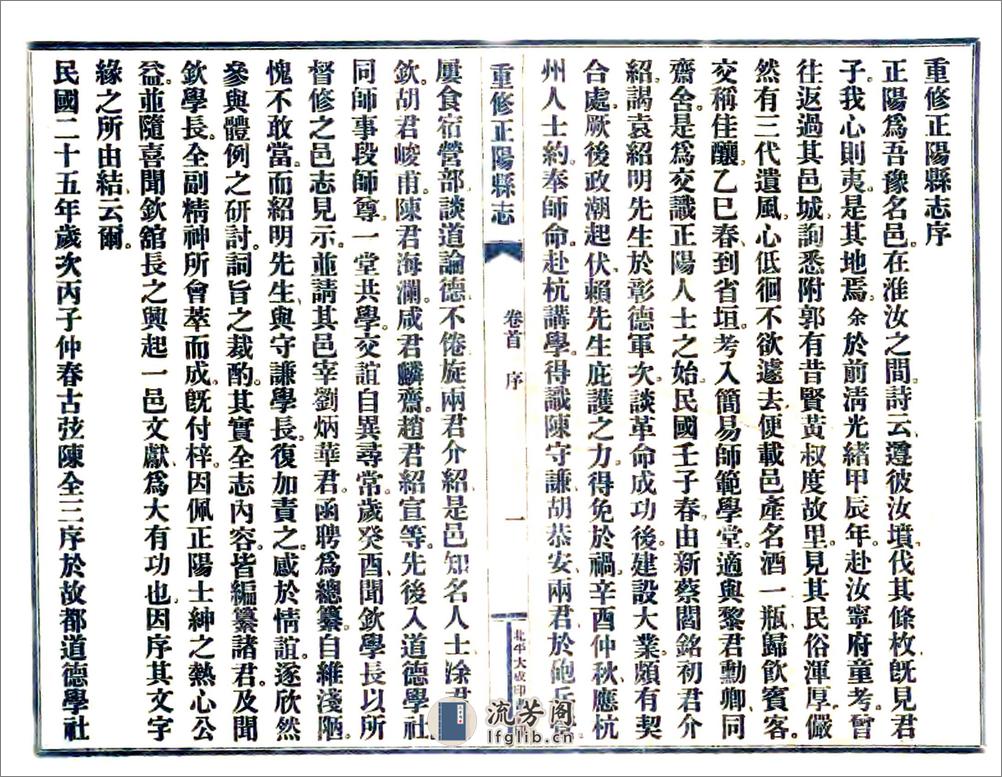 重修正陽縣志序
正陽爲吾豫名邑。在淮汝之間。詩云遵彼汝墳。伐其條枚。旣見君
子。我心則夷。是其地焉。余於前淸光緒甲辰年。赴汝寧府童考。曾
往返過其邑城。詢悉附郭有昔賢黃叔度故里。見其民俗渾厚。儼
然有三代遺風。心低徊不欲遽去。便載邑產名酒一瓶。歸飲賓客。
交稱佳釀。乙巳春。到省垣。考入簡易師範學堂。適與黎君勳卿。同
齋舍。是爲交識正陽人士之始。民國壬子春。由新蔡閻銘初君介
紹。謁袁紹明先生於彰德軍次。談革命成功後。建設大業。頗有契
合處。厥後政潮起伏。賴先生庇護之力。得免於禍。辛酉仲秋。應杭
州人士約。奉師命。赴杭講學。得識陳守謙、胡恭安、兩君於砲兵
重修正陽縣志 卷首 序 一 北平大成印
屢食宿營部。談道論德不倦。旋兩君介紹是邑知名人士涂君
欽。胡君峻甫。陳君海瀾。咸君麟齋。趙君紹宣等。先後入道德學社。
同師事段師尊。一堂共學。交誼自異尋常。歲癸酉。聞欽學長以所
督修之邑志見示。並請其邑宰劉炳華君函聘爲總纂。自維淺陋。
愧不敢當。而紹明先生與守謙學長。復加責之。感於情誼。遂欣然
參與體例之研討。詞旨之裁酌。其實全志內容。皆編纂諸君。及聞
欽學長。全副精神所會萃而成。旣付梓。因佩正陽士紳之熱心公
益。並隨喜聞欽舘長之興起一邑文獻、爲大有功也。因序其文字
緣之所由結云爾。
民國二十五年歲次丙子仲春古弦陳全三序於故都道德學社
流芳阁
lfglib.cn